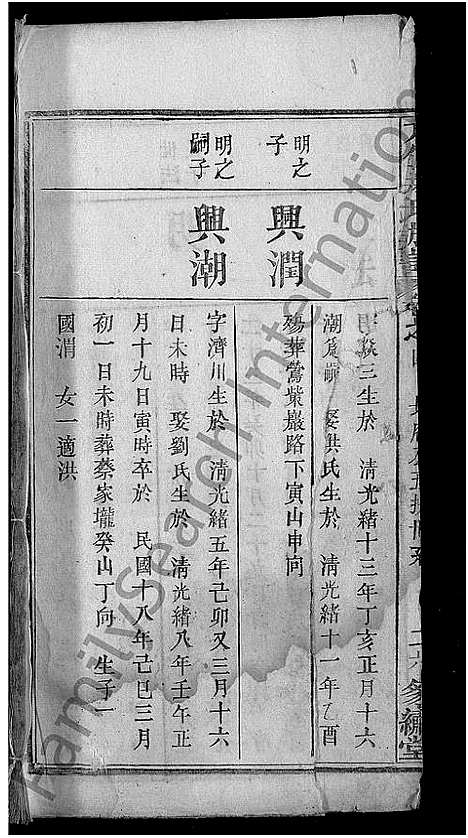 明之子
興潤
三生於 清光緒十三年丁亥正月十六
潮 嗣 娶洪氏生於 清光緒十一年乙酉
殤葬鶯紫巖路下寅山申向
明之嗣子
興潮
字濟川生於 清光緒五年己卯又三月十六
日未時 娶劉氏生於 清光緒八年壬午正
月十九日寅時卒於 民國十八年己巳三月
初一日未時葬蔡家壠癸山丁向 生子一
國渭 女一適洪
FamilySearch International